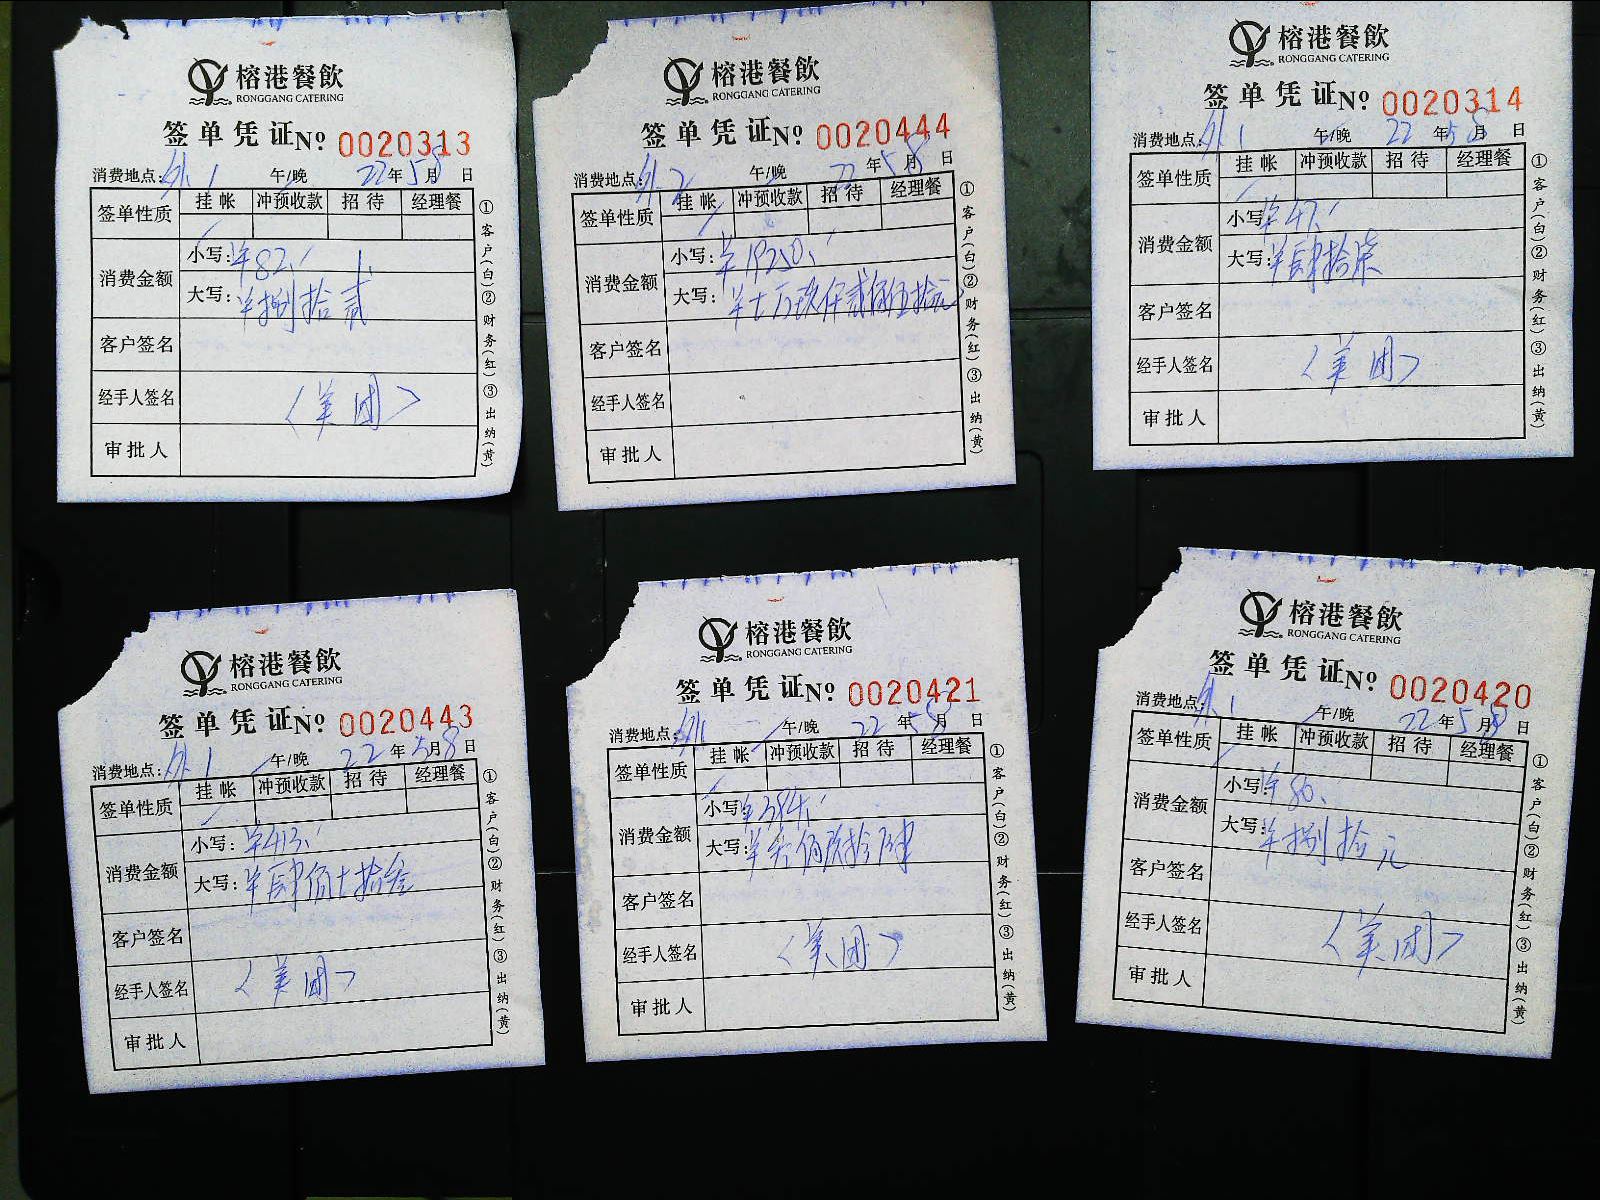 榕港餐飲
RONGGANG CATERING
签单凭证№ 0020313
消费地点: 外1 午/晚 22年5月8日
签单性质 挂帐 冲预收款 招待 经理餐
消费金额
小写: ¥82.
大写: ¥捌拾贰
客户签名
经手人签名 〈美团〉
审批人
①客户(白)②财务(红)③出纳(黄)
榕港餐飲
RONGGANG CATERING
签单凭证№ 0020444
消费地点: 外2 午/晚 22年5月8日
签单性质 挂帐 冲预收款 招待 经理餐
消费金额
小写: ¥19250.
大写: ¥十万玖仟贰佰伍拾元
客户签名
经手人签名
审批人
①客户(白)②财务(红)③出纳(黄)
榕港餐飲
RONGGANG CATERING
签单凭证№ 0020314
消费地点: 外1 午/晚 22年5月8日
签单性质 挂帐 冲预收款 招待 经理餐
消费金额
小写: ¥47.
大写: ¥肆拾柒
客户签名
经手人签名 〈美团〉
审批人
①客户(白)②财务(红)③出纳(黄)
榕港餐飲
RONGGANG CATERING
签单凭证№ 0020443
消费地点: 外1 午/晚 22年5月8日
签单性质 挂帐 冲预收款 招待 经理餐
消费金额
小写: ¥413.
大写: ¥肆佰十拾叁
客户签名
经手人签名 〈美团〉
审批人
①客户(白)②财务(红)③出纳(黄)
榕港餐飲
RONGGANG CATERING
签单凭证№ 0020421
消费地点: 外1 午/晚 22年5月8日
签单性质 挂帐 冲预收款 招待 经理餐
消费金额
小写:
大写: 佰玖拾肆
客户签名
经手人签名 〈美团〉
审批人
①客户(白)②财务(红)③出纳(黄)
榕港餐飲
RONGGANG CATERING
签单凭证№ 0020420
消费地点: 外1 午/晚 22年5月8日
签单性质 挂帐 冲预收款 招待 经理餐
消费金额
小写: ¥80.
大写: ¥捌拾元
客户签名
经手人签名 〈美团〉
审批人
①客户(白)②财务(红)③出纳(黄)